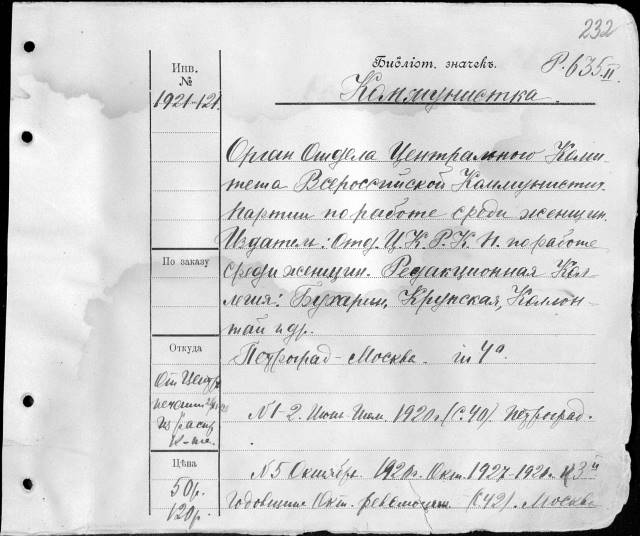 232
Библіот. значекъ. Р. 635 II
Инв.
№
1921-121.
Коммунистка.
Орган Отдела Центрального Коми-
тета Всероссийской Коммунистич.
партии по работе среди женщин.
Издатель: Отд. Ц.К.Р.К.П. по работе
среди женщин. Редакционная Кол-
легия: Бухарин, Крупская, Коллон-
тай и др.
Петроград-Москва. in 4°
№1-2. Июнь-Июль 1920 г. (С. 40) Петроград.
№5 Октябрь 1920 г. Окт. 1920 г. 3 й
Годовщине Окт. революции (С. 42). Москва
По заказу
Откуда
От Центр.
печати
Из распр.
к-та.
Цѣна
50 р.
120 р.